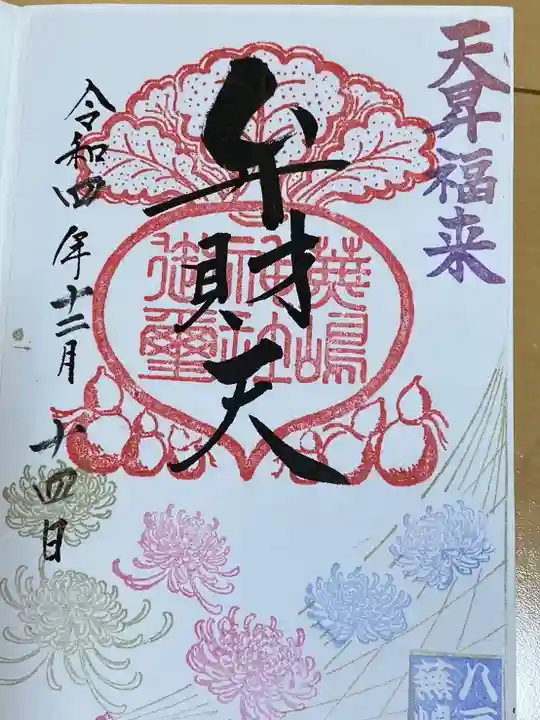 天昇福来
弁財天
蕪嶋
神社
御璽
令和四年十二月十四日
八
蕪嶋